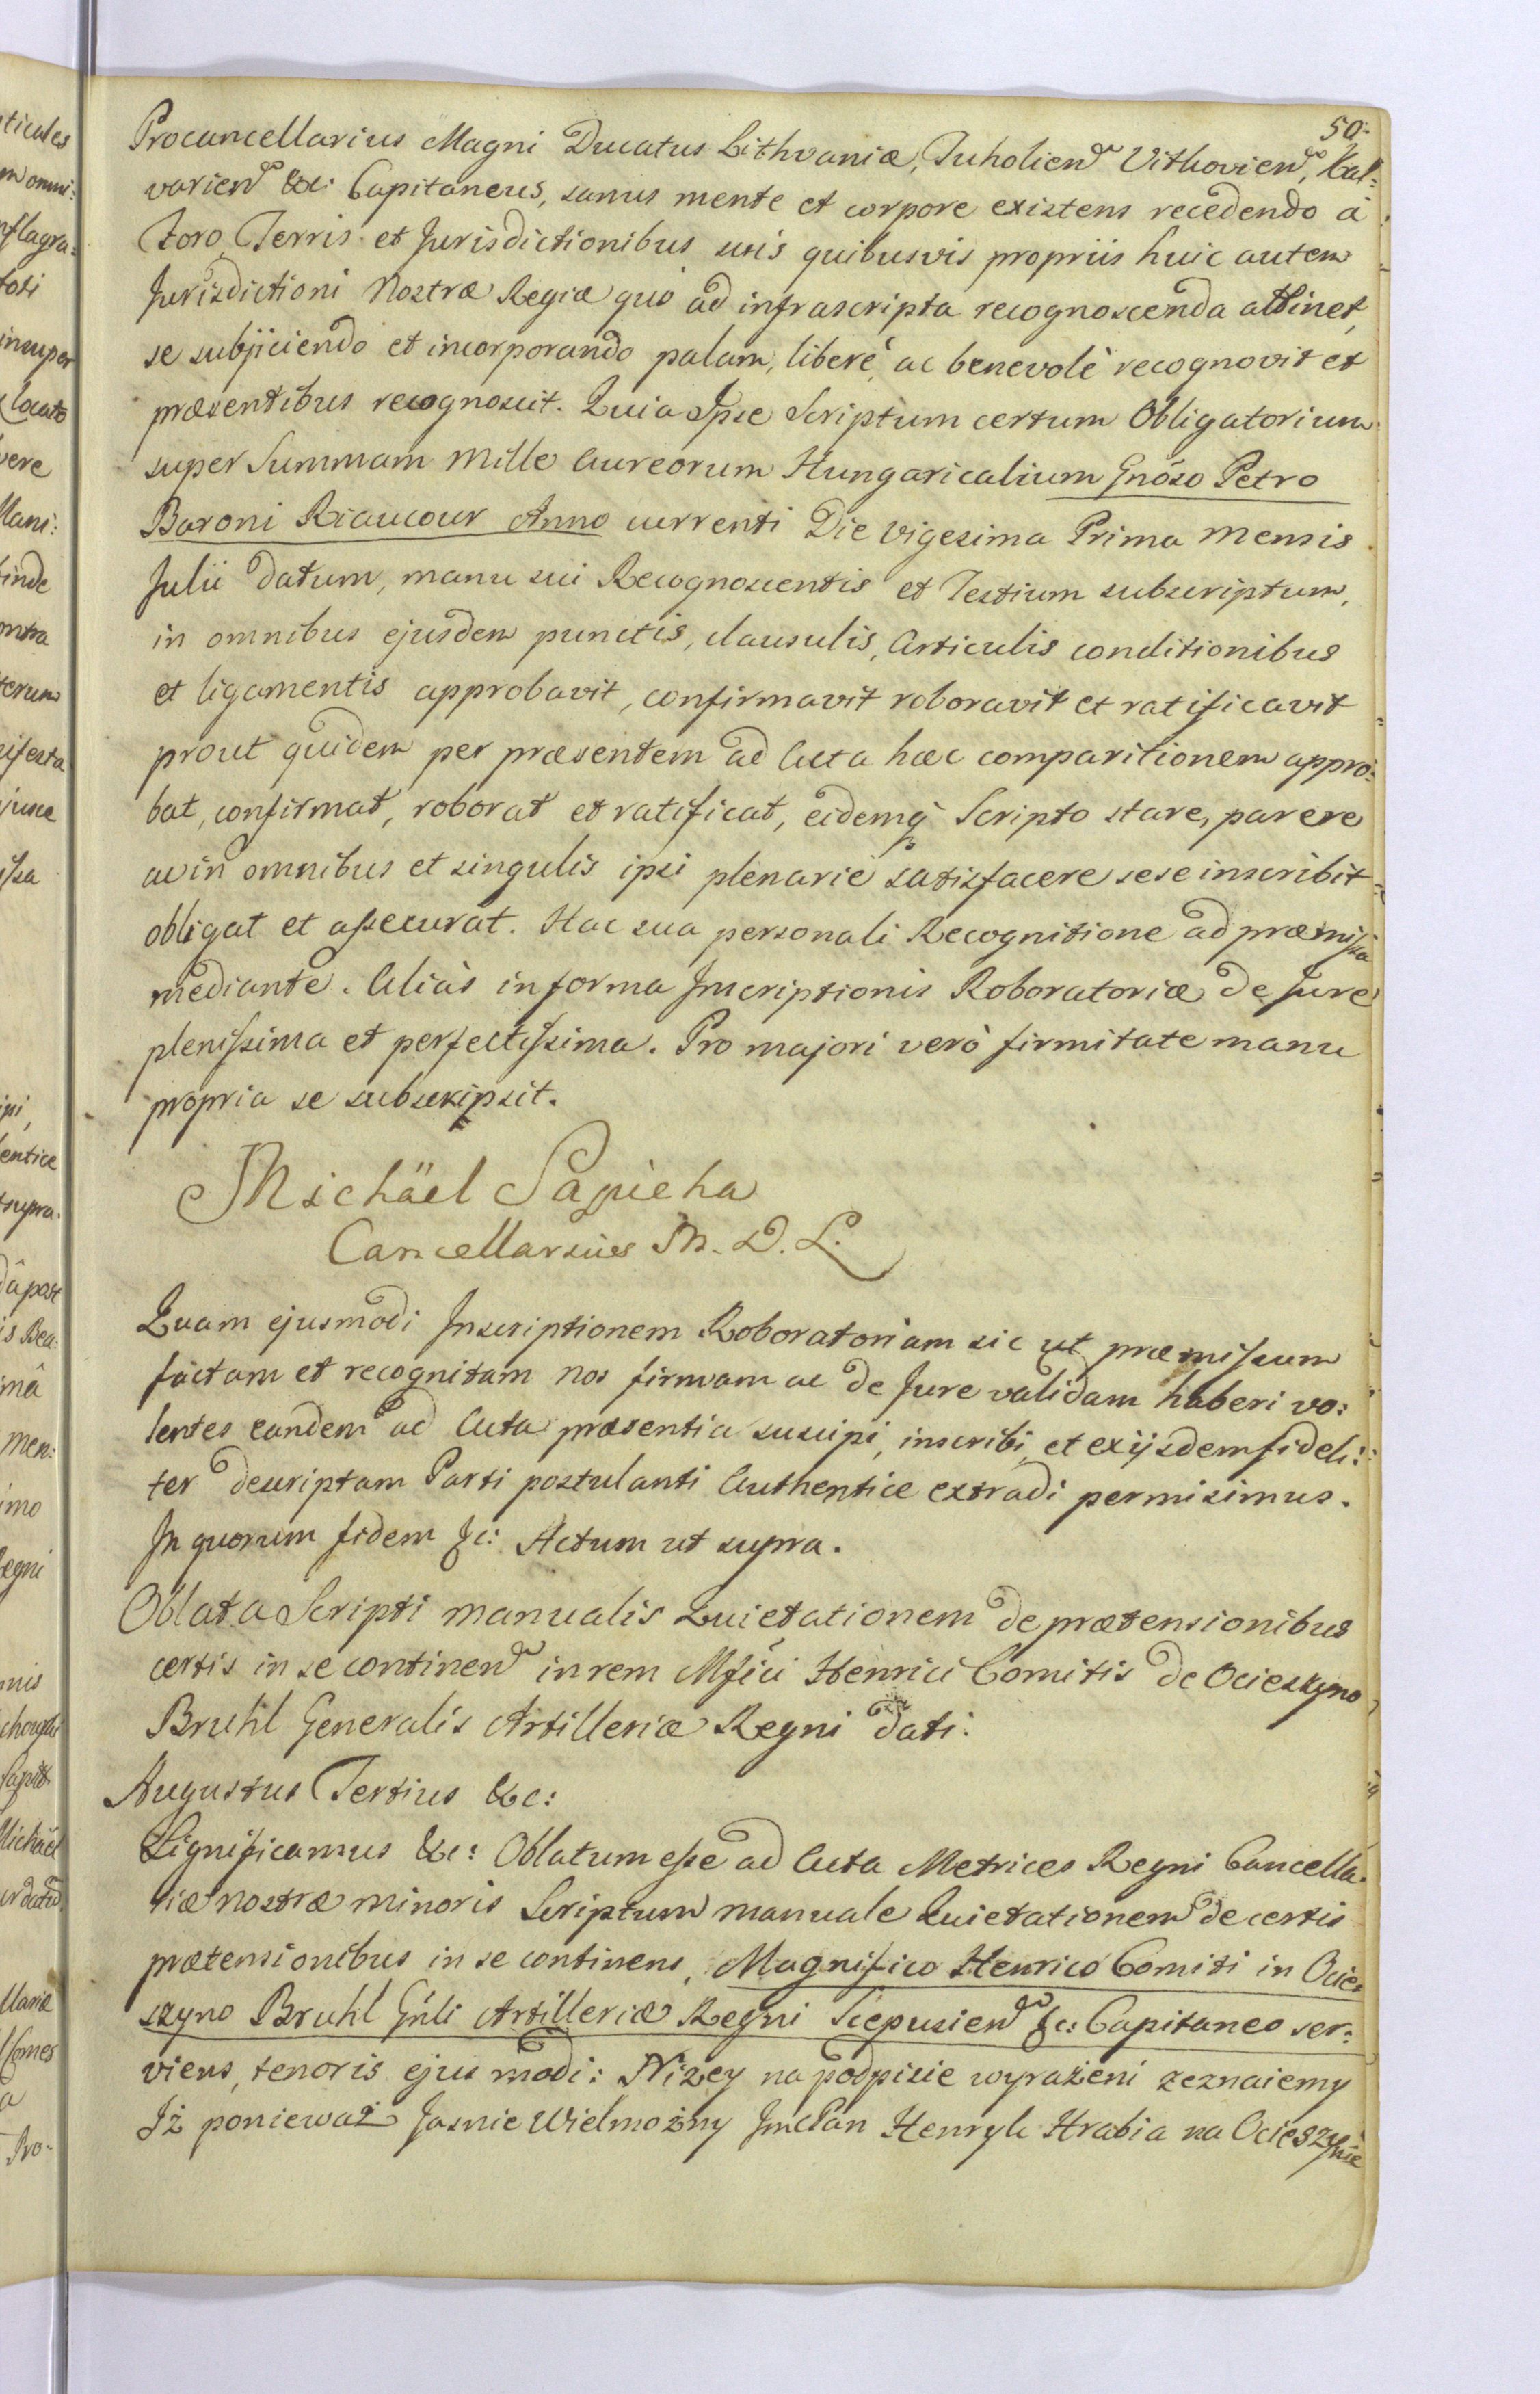 50.
Procancellarius Magni Ducatus Lithvaniæ, Tuholien̄ Vithovien̄, Kal=
varien̄ &c: Capitaneus, sanus mente et corpore existens recedendo à
Foro Terris et Jurisdictionibus suis quibusvis propriis huic autem
Jurisdictioni Nostræ Regiæ quò ad infrascripta recognoscenda attinet,
se subjiciendo et incorporando palam, liberè, ac benevolè recognovit et
præsentibus recognoscit. Quia Ipse Scriptum certum Obligatorium
super Summam Mille Aureorum Hungaricalium Gnōso Petro
Baroni Riaucour Anno currenti Die Vigesima Prima Mensis
Julii datum, manu sui Recognoscentis et Testium subscriptum,
in omnibus ejusdem punctis, clausulis, Articulis conditionibus
et ligamentis approbavit, confirmavit roboravit et ratificavit
prout quidem per præsentem ad Acta hæc comparitionem appro=
bat, confirmat, roborat et ratificat, eidemq́ Scripto stare, parere
ac in omnibus et singulis ipsi plenariè satisfacere sese inscribit
obligat et assecurat. Hac sua personali Recognitione ad præmissa
mediante. Aliàs in forma Inscriptionis Roboratoriæ de Jure
plenissima et perfectissima. Pro majori verò firmitate manu
propria se subscripsit.
Michäel Sapieha
Cancellarius M. D. L.
Quam ejusmodi Inscriptionem Roboratoriam sic ut præmissum
factam et recognitam Nos firmam ac de Jure validam haberi vo:
lentes eandem ad Acta præsentia suscipi, inscribi, et ex ijsdem fideli:
ter descriptam Parti postulanti Authentice extradi permisimus.
In quorum fidem &c: Actum ut supra.
Oblata Scripti manualis Quietationem de prætensionibus
certis in se continen̄ in rem Mfići Henrici Comitis de Ocieszyno
Bruhl Generalis Artilleriæ Regni dati:
Augustus Tertius &c:
Significamus &c: Oblatum esse ad Acta Metrices Regni Cancella=
riæ nostræ minoris Scriptum manuale Quietationem de certis
prætensionibus in se continens, Magnifico Henrico Comiti in Ocie=
szyno Bruhl Gńli Artilleriæ Regni Scepusien̄ &c: Capitaneo ser:
viens, tenoris ejusmodi: Niżey na podpisie wyrażeni zeznaiemy
Iż ponieważ Jasnie Wielmożny Jmć Pan Henryk Hrabia na Ocieszynie